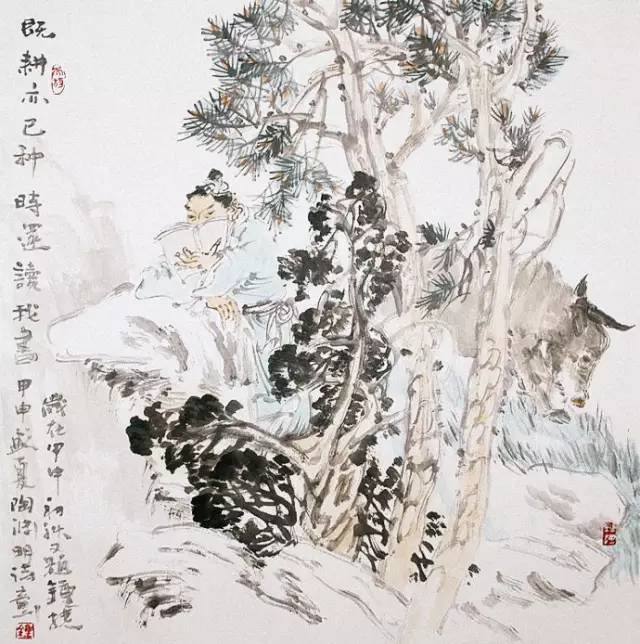 既耕亦已种時還讀我書甲申盛夏陶渊明诗意
歲在甲申初秋又題